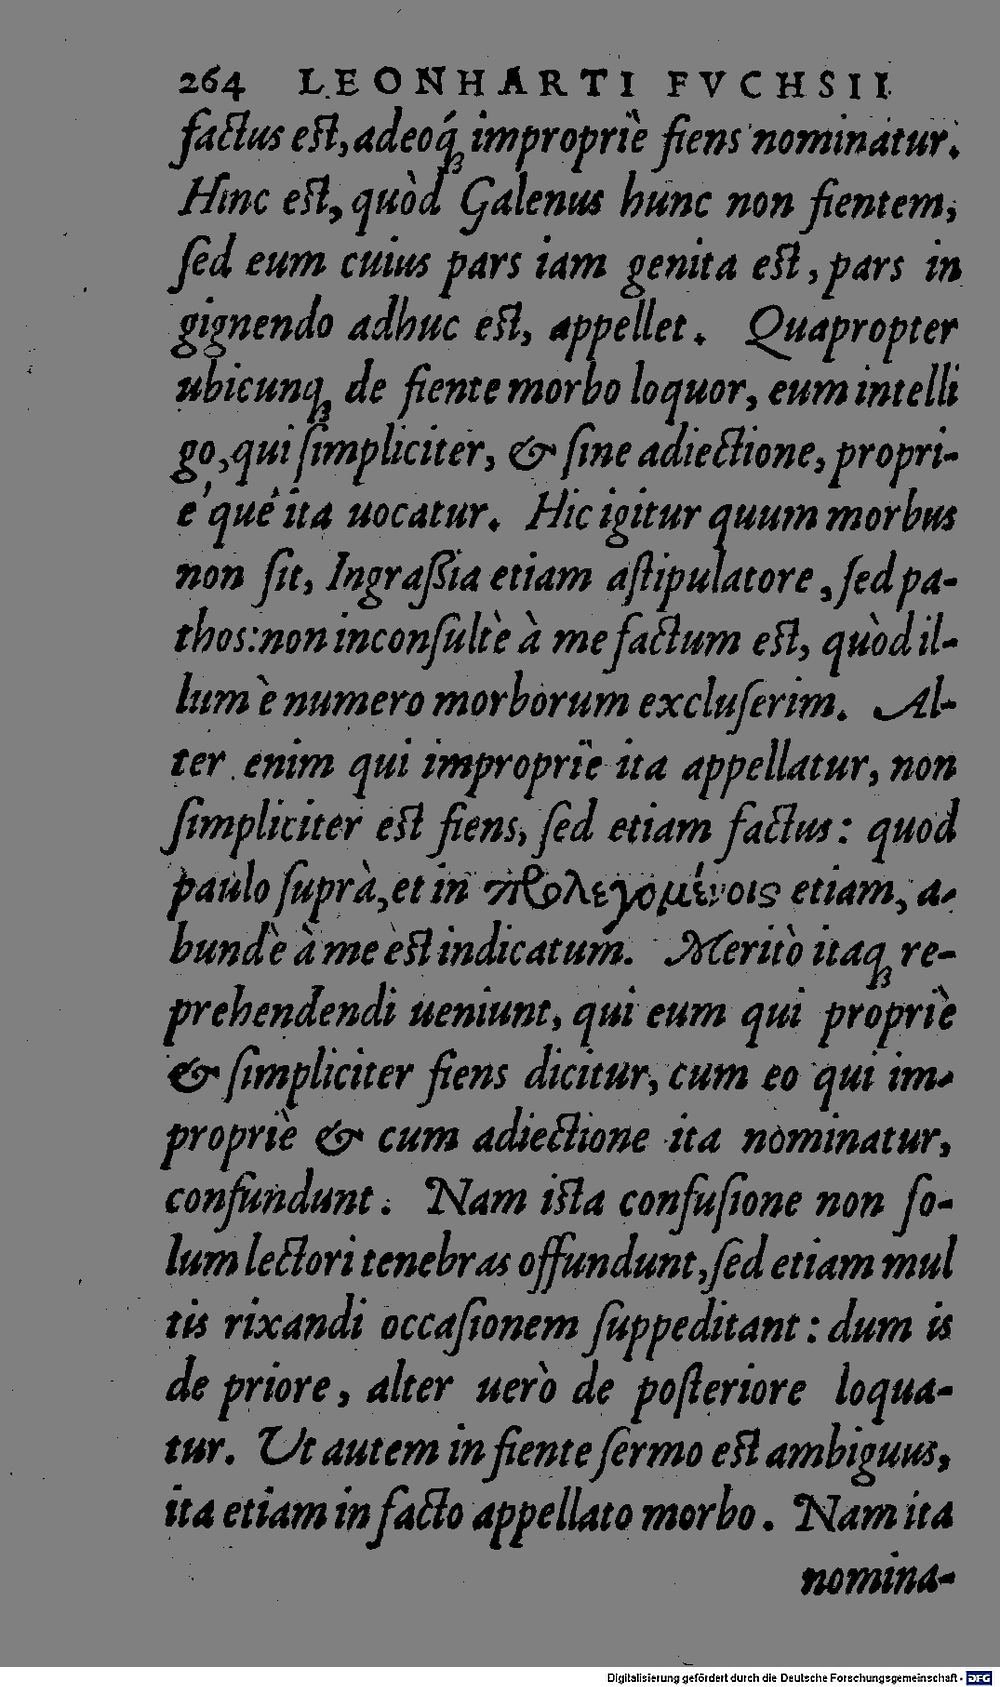 264 LEONHARTI FVCHSII
factus est, adeoq́ꝫ impropriè fiens nominatur.
Hinc est, quòd Galenus hunc non fientem,
sed eum cuius pars iam genita est, pars in
gignendo adhuc est, appellet. Quapropter
ubicunqꝫ de fiente morbo loquor, eum intelli
go, qui simpliciter, & sine adiectione, propri-
é que ita uocatur. Hic igitur quum morbus
non sit, Ingraßia etiam astipulatore, sed pa-
thos: non inconsultè à me factum est, quòd il-
lum è numero morborum excluserim. Al-
ter enim qui impropriè ita appellatur, non
simpliciter est fiens, sed etiam factus: quod
paulo suprà, et in προλεγομένοις etiam, a-
bundè à me est indicatum. Meritò itaqꝫ re-
prehendendi ueniunt, qui eum qui propriè
& simpliciter fiens dicitur, cum eo qui im-
propriè & cum adiectione ita nominatur,
confundunt. Nam ista confusione non so-
lum lectori tenebras offundunt, sed etiam mul
tis rixandi occasionem suppeditant: dum is
de priore, alter uerò de posteriore loqua-
tur. Ut autem in fiente sermo est ambiguus,
ita etiam in facto appellato morbo. Nam ita
nomina-
Digitalisierung gefördert durch die Deutsche Forschungsgemeinschaft - DFG